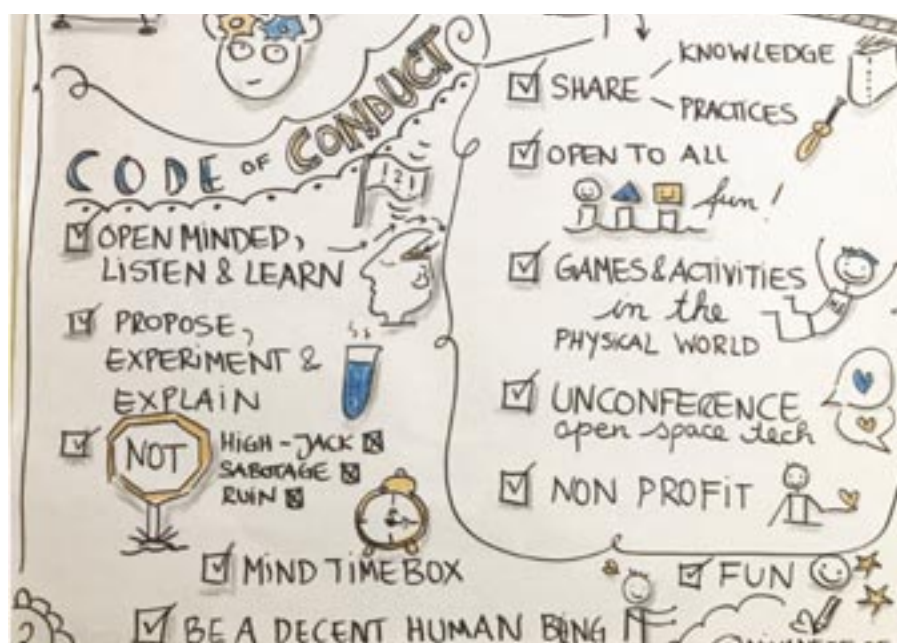 CODE OF CONDUCT
121
OPEN MINDED,
LISTEN & LEARN
PROPOSE,
EXPERIMENT &
EXPLAIN
NOT
HIGH-JACK
SABOTAGE
RUIN
MIND TIMEBOX
BE A DECENT HUMAN BEING
2
SHARE
KNOWLEDGE
PRACTICES
OPEN TO ALL
fun!
GAMES & ACTIVITIES
in the
PHYSICAL WORLD
UNCONFERENCE
open space tech
NON PROFIT
FUN